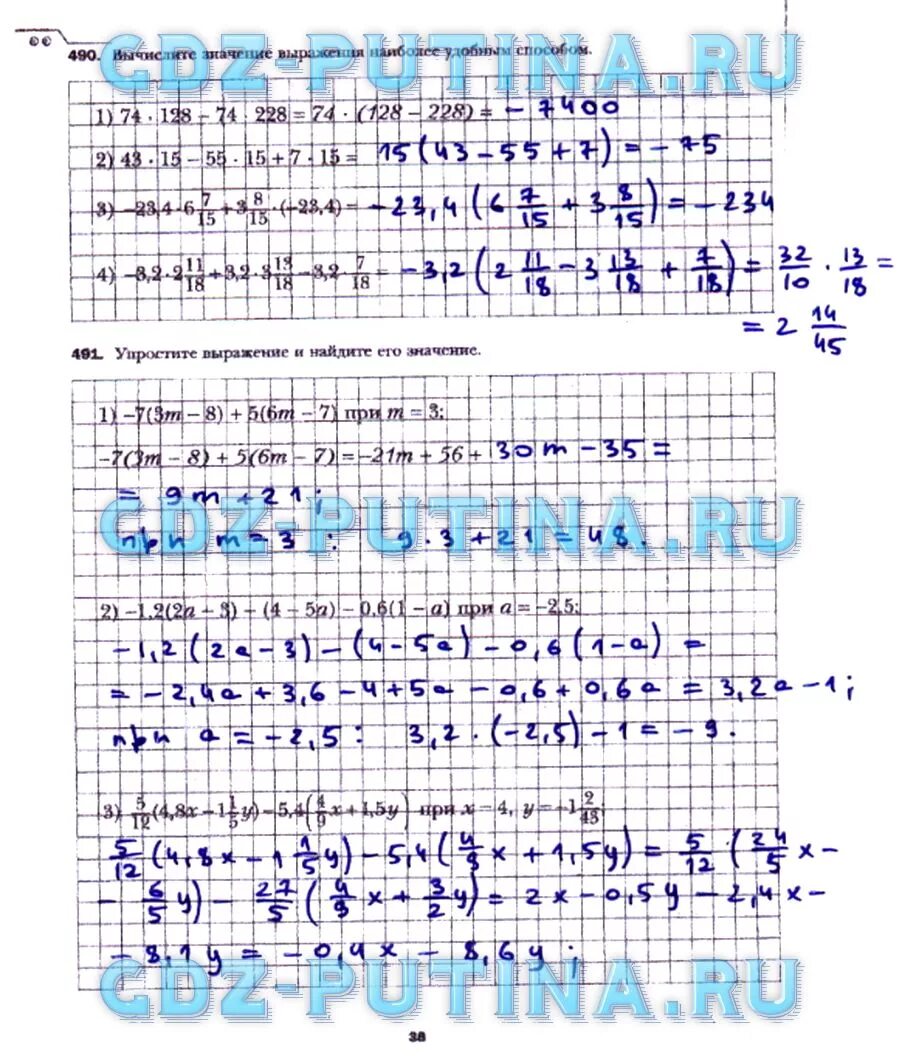 490. Вычислите значение выражения наиболее удобным способом.
GDZ-PUTINA.RU
1) 74 · 128 − 74 · 228 = 74 · (128 − 228) = − 7400
2) 43 · 15 − 55 · 15 + 7 · 15 = 15 (43 − 55 + 7) = − 75
3) −23,4 · 6 7/15 + 3 8/15 · (−23,4) = −23,4 (6 7/15 + 3 8/15) = − 234
4) −3,2 · 2 11/18 + 3,2 · 3 13/18 − 3,2 · 7/18 = −3,2 (2 11/18 − 3 13/18 + 7/18) = 32/10 · 13/18 =
= 2 14/45
GDZ-PUTINA.RU
491. Упростите выражение и найдите его значение.
1) −7(3m − 8) + 5(6m − 7) при m = 3;
−7(3m − 8) + 5(6m − 7) = −21m + 56 + 30m − 35 =
= 9m + 21;
GDZ-PUTINA.RU
при m = 3 : 9 · 3 + 21 = 48.
2) −1,2(2a − 3) − (4 − 5a) − 0,6(1 − a) при a = −2,5;
−1,2 (2a − 3) − (4 − 5a) − 0,6 (1 − a) =
GDZ-PUTINA.RU
= −2,4a + 3,6 − 4 + 5a − 0,6 + 0,6a = 3,2a − 1;
при a = −2,5 : 3,2 · (−2,5) − 1 = − 9.
3) 5/12 (4,8x − 1 1/5 y) − 5,4 (4/9 x + 1,5y) при x = 4, y = −1 2/43;
GDZ-PUTINA.RU
5/12 (4,8x − 1 1/5 y) − 5,4 (4/9 x + 1,5y) = 5/12 · (24/5 x −
− 6/5 y) − 27/5 (4/9 x + 3/2 y) = 2x − 0,5y − 2,4x −
− 8,1y = − 0,4x − 8,6y ;
GDZ-PUTINA.RU
38